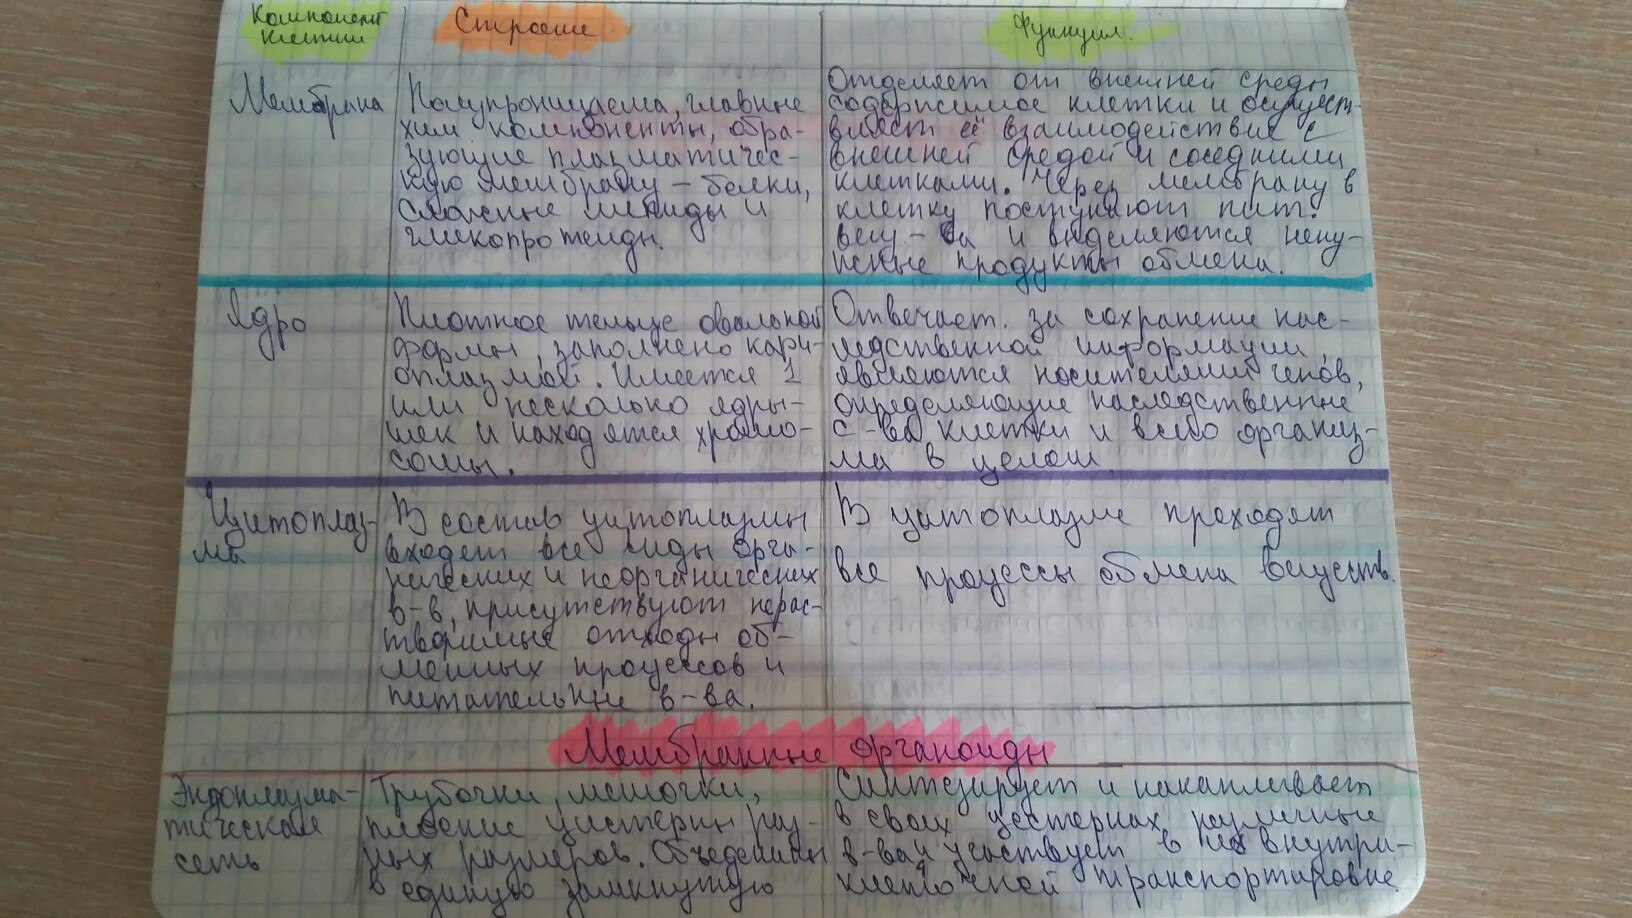 Компонент
клетки
Строение
Функции.
Мембрана
Полупроницаема, главные
хим компоненты, обра-
зующие плазматичес-
кую мембрану – белки,
сложные липиды и
гликопротеиды.
Отделяет от внешней среды
содержимое клетки и осущест-
вляет её взаимодействие с
внешней средой и соседними
клетками. Через мембрану в
клетку поступают пит.
вещ-ва и выделяются нену-
жные продукты обмена.
Ядро
Плотное тельце овальной
формы, заполнено кари-
оплазмой. Имеется 1
или несколько ядры-
шек и находятся хромо-
сомы.
Отвечает за сохранение нас-
ледственной информации,
являются носителями генов,
определяющие наследственные
с-ва клетки и всего организ-
ма в целом.
Цитоплаз-
ма
В состав цитоплазмы
входят все виды орга-
нических и неорганических
в-в, присутствуют нерас-
творимые отходы об-
менных процессов и
питательные в-ва.
В цитоплазме проходят
все процессы обмена веществ.
Мембранные органоиды
Эндоплазма-
тическая
сеть
Трубочки, мешочки,
плоские цистерны раз-
ных размеров. Объеденины
в единую замкнутую
Синтезирует и накапливает
в своих цестернах различные
в-ва и участвует в их внутри-
клеточной транспортировке